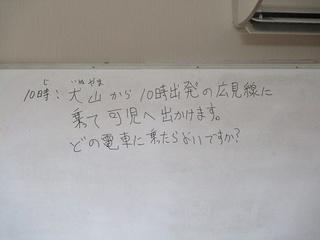 10時: 犬山から10時出発の広見線に
乗て可児へ出かけます。
どの電車に乗たらよいですか?